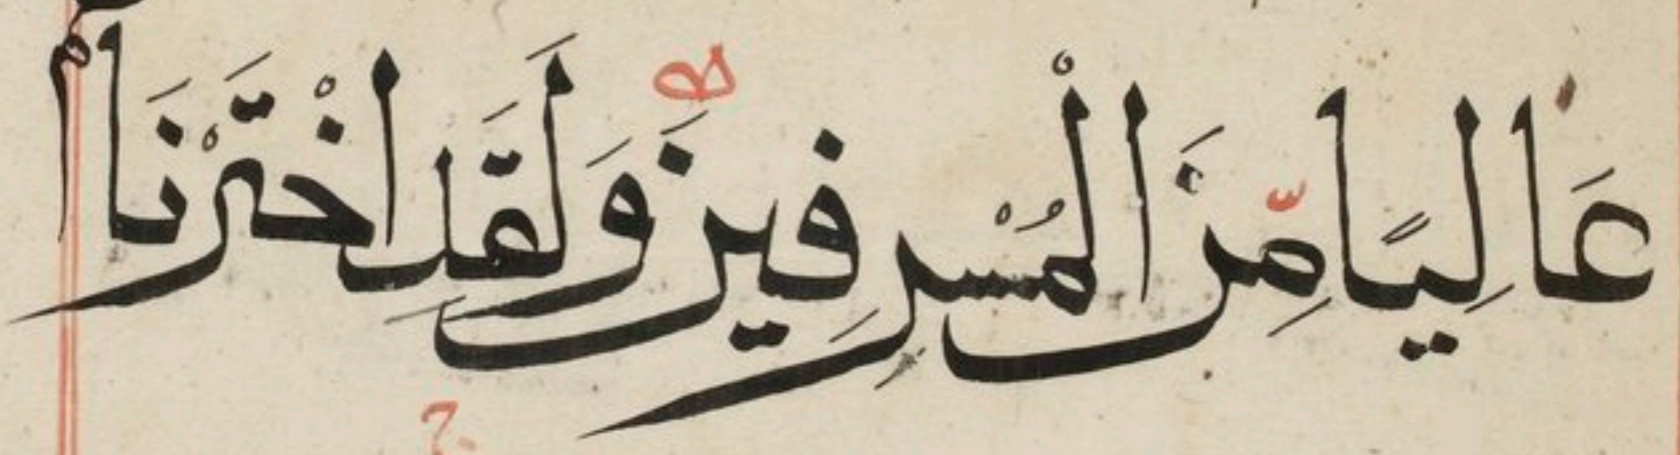 عَالِيًا مِّنَ الْمُسْرِفِينَ وَلَقَدِ اخْتَرْنَا